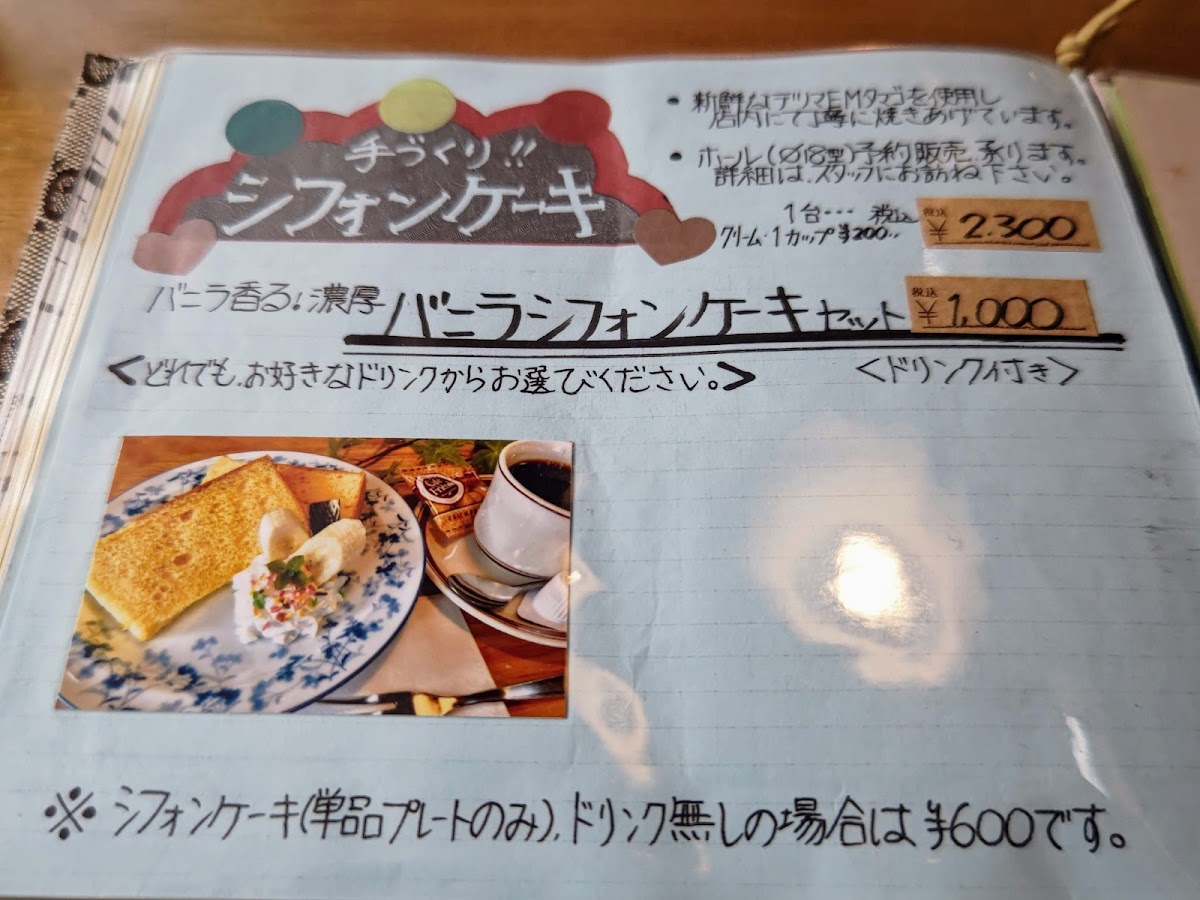 手づくり!!
シフォンケーキ
• 新鮮なデツマEMタマゴを使用し
店内にて丁寧に焼きあげています。
• ホール(Ø18型)予約販売承ります。
詳細は、スタッフにお訪ね下さい。
1台… 税込 税込 ¥ 2.300
クリーム・1カップ¥200..
バニラ香る!濃厚 バニラシフォンケーキセット 税込 ¥ 1,000
<どれでも、お好きなドリンクからお選びください。> <ドリンク付き>
※ シフォンケーキ(単品プレートのみ)、ドリンク無しの場合は¥600です。